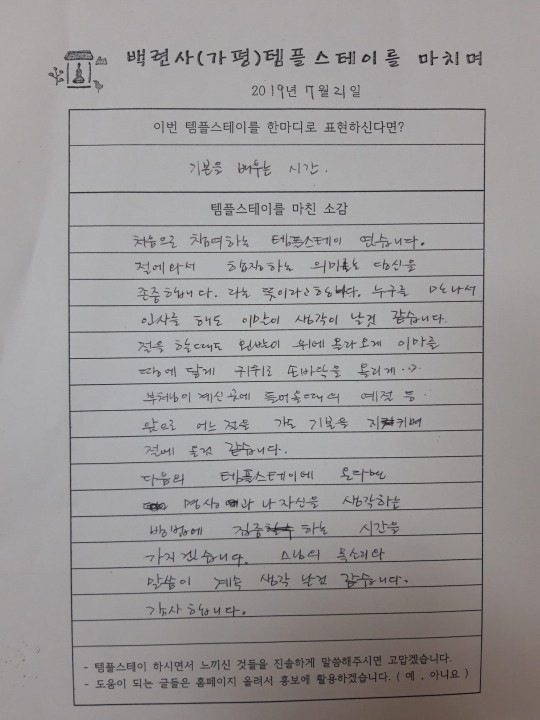 백련사(가평)템플스테이를 마치며
2019년 7월 21일
이번 템플스테이를 한마디로 표현하신다면?
기본을 배우는 시간.
템플스테이를 마친 소감
처음으로 참여하는 템플스테이 였습니다.
절에와서 합장하는 의미는 당신을
존중합니다. 라는 뜻이라고 합니다. 누구를 만나서
인사를 해도 이만이 생각이 날것 같습니다.
절을 할때도 왼발이 위에 올라오게 이마를
땅에 닿게 귀위로 손바닥을 올리게
부처님이 계신 곳에 들어올때의 예절 등.
앞으로 어느 절을 가도 기본을 지키며
절에 올것 같습니다.
다음의 템플스테이에 온다면
명상과 나 자신을 생각하는
방법에 집중 하는 시간을
가지겠습니다. 스님의 목소리와
말씀이 계속 생각 날것 같습니다.
감사합니다.
- 템플스테이 하시면서 느끼신 것들을 진솔하게 말씀해주시면 고맙겠습니다.
- 도움이 되는 글들은 홈페이지 올려서 홍보에 활용하겠습니다. ( 예 , 아니요 )